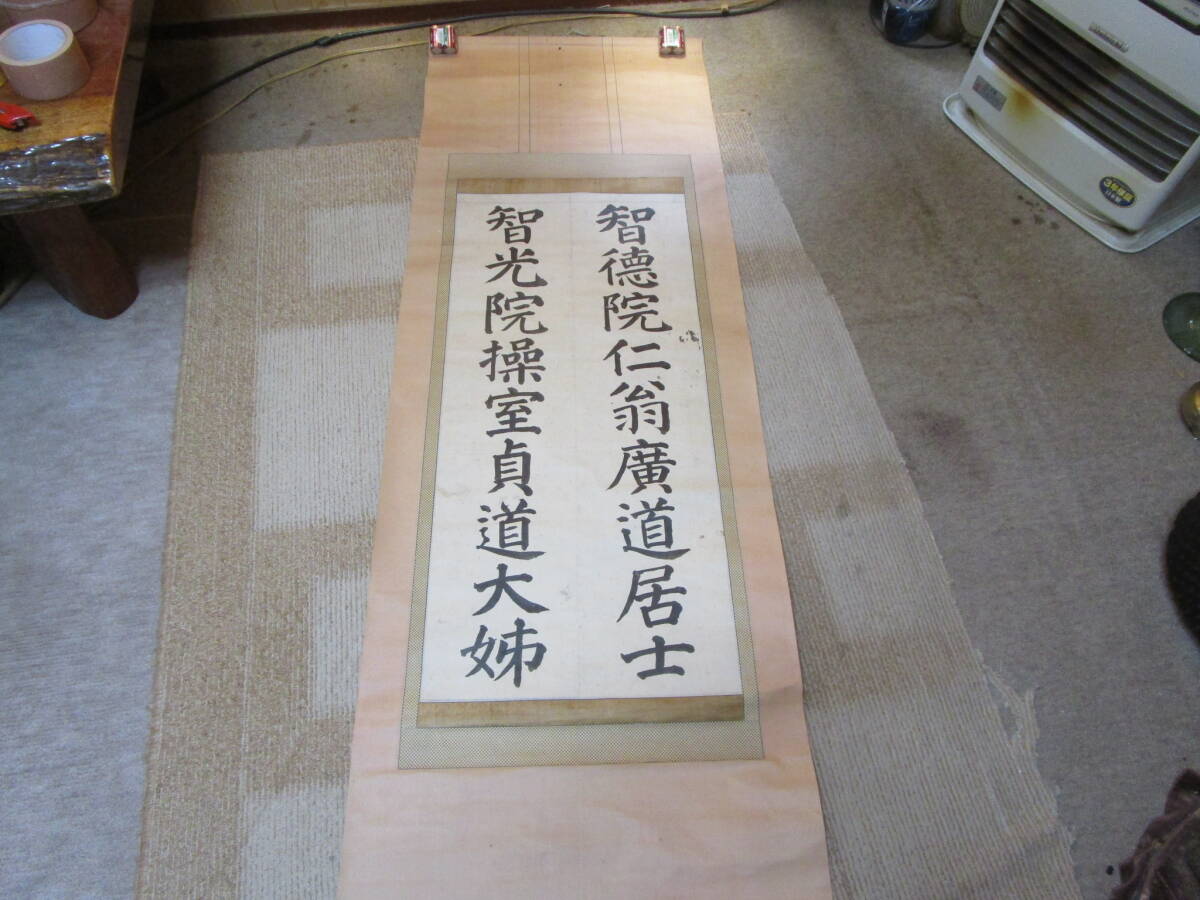 智德院仁翁廣道居士
智光院操室貞道大姉